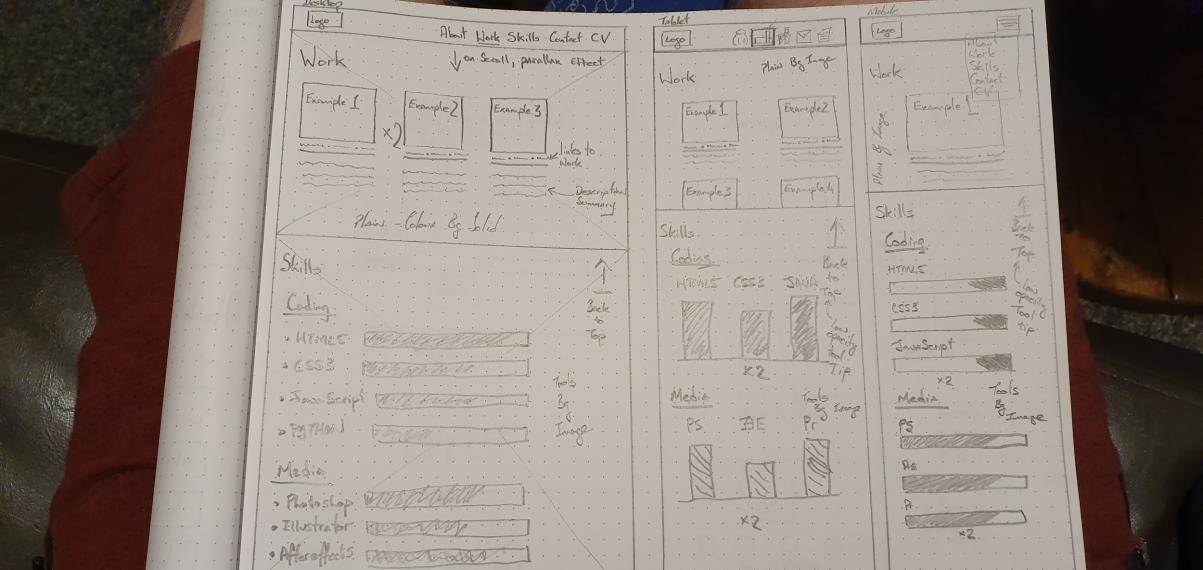 Desktop
Logo
About Work Skills Contact CV
on Scroll, parallax Effect
Work
Example 1
×2
Example 2
Example 3
links to
Work
Description
Summary
Plain - Colour Bg Solid
Skills
Back
to
Top
Coding
• HTML5
• CSS3
• JavaScript
• PYTHON
Tools
Bg
Image
Media
• Photoshop
• Illustrator
• Aftereffects
Tablet
Logo
Plain Bg Image
Work
Example 1
Example 2
Example 3
Example 4
Skills
Coding
HTML5 CSS3 JAVA
Back
to
Top
low
opacity
Tool
Tip
×2
Media
Tools
Bg Image
PS
Pr
×2
Mobile
Logo
About
Work
Skills
Contact
CV
Work
Example 1
Plain Bg Image
Skills
Back
to
Top
low
opacity
Tool
tip
Coding
HTML5
CSS3
JavaScript
×2
Media
Tools
Bg
Image
PS
Ae
×2